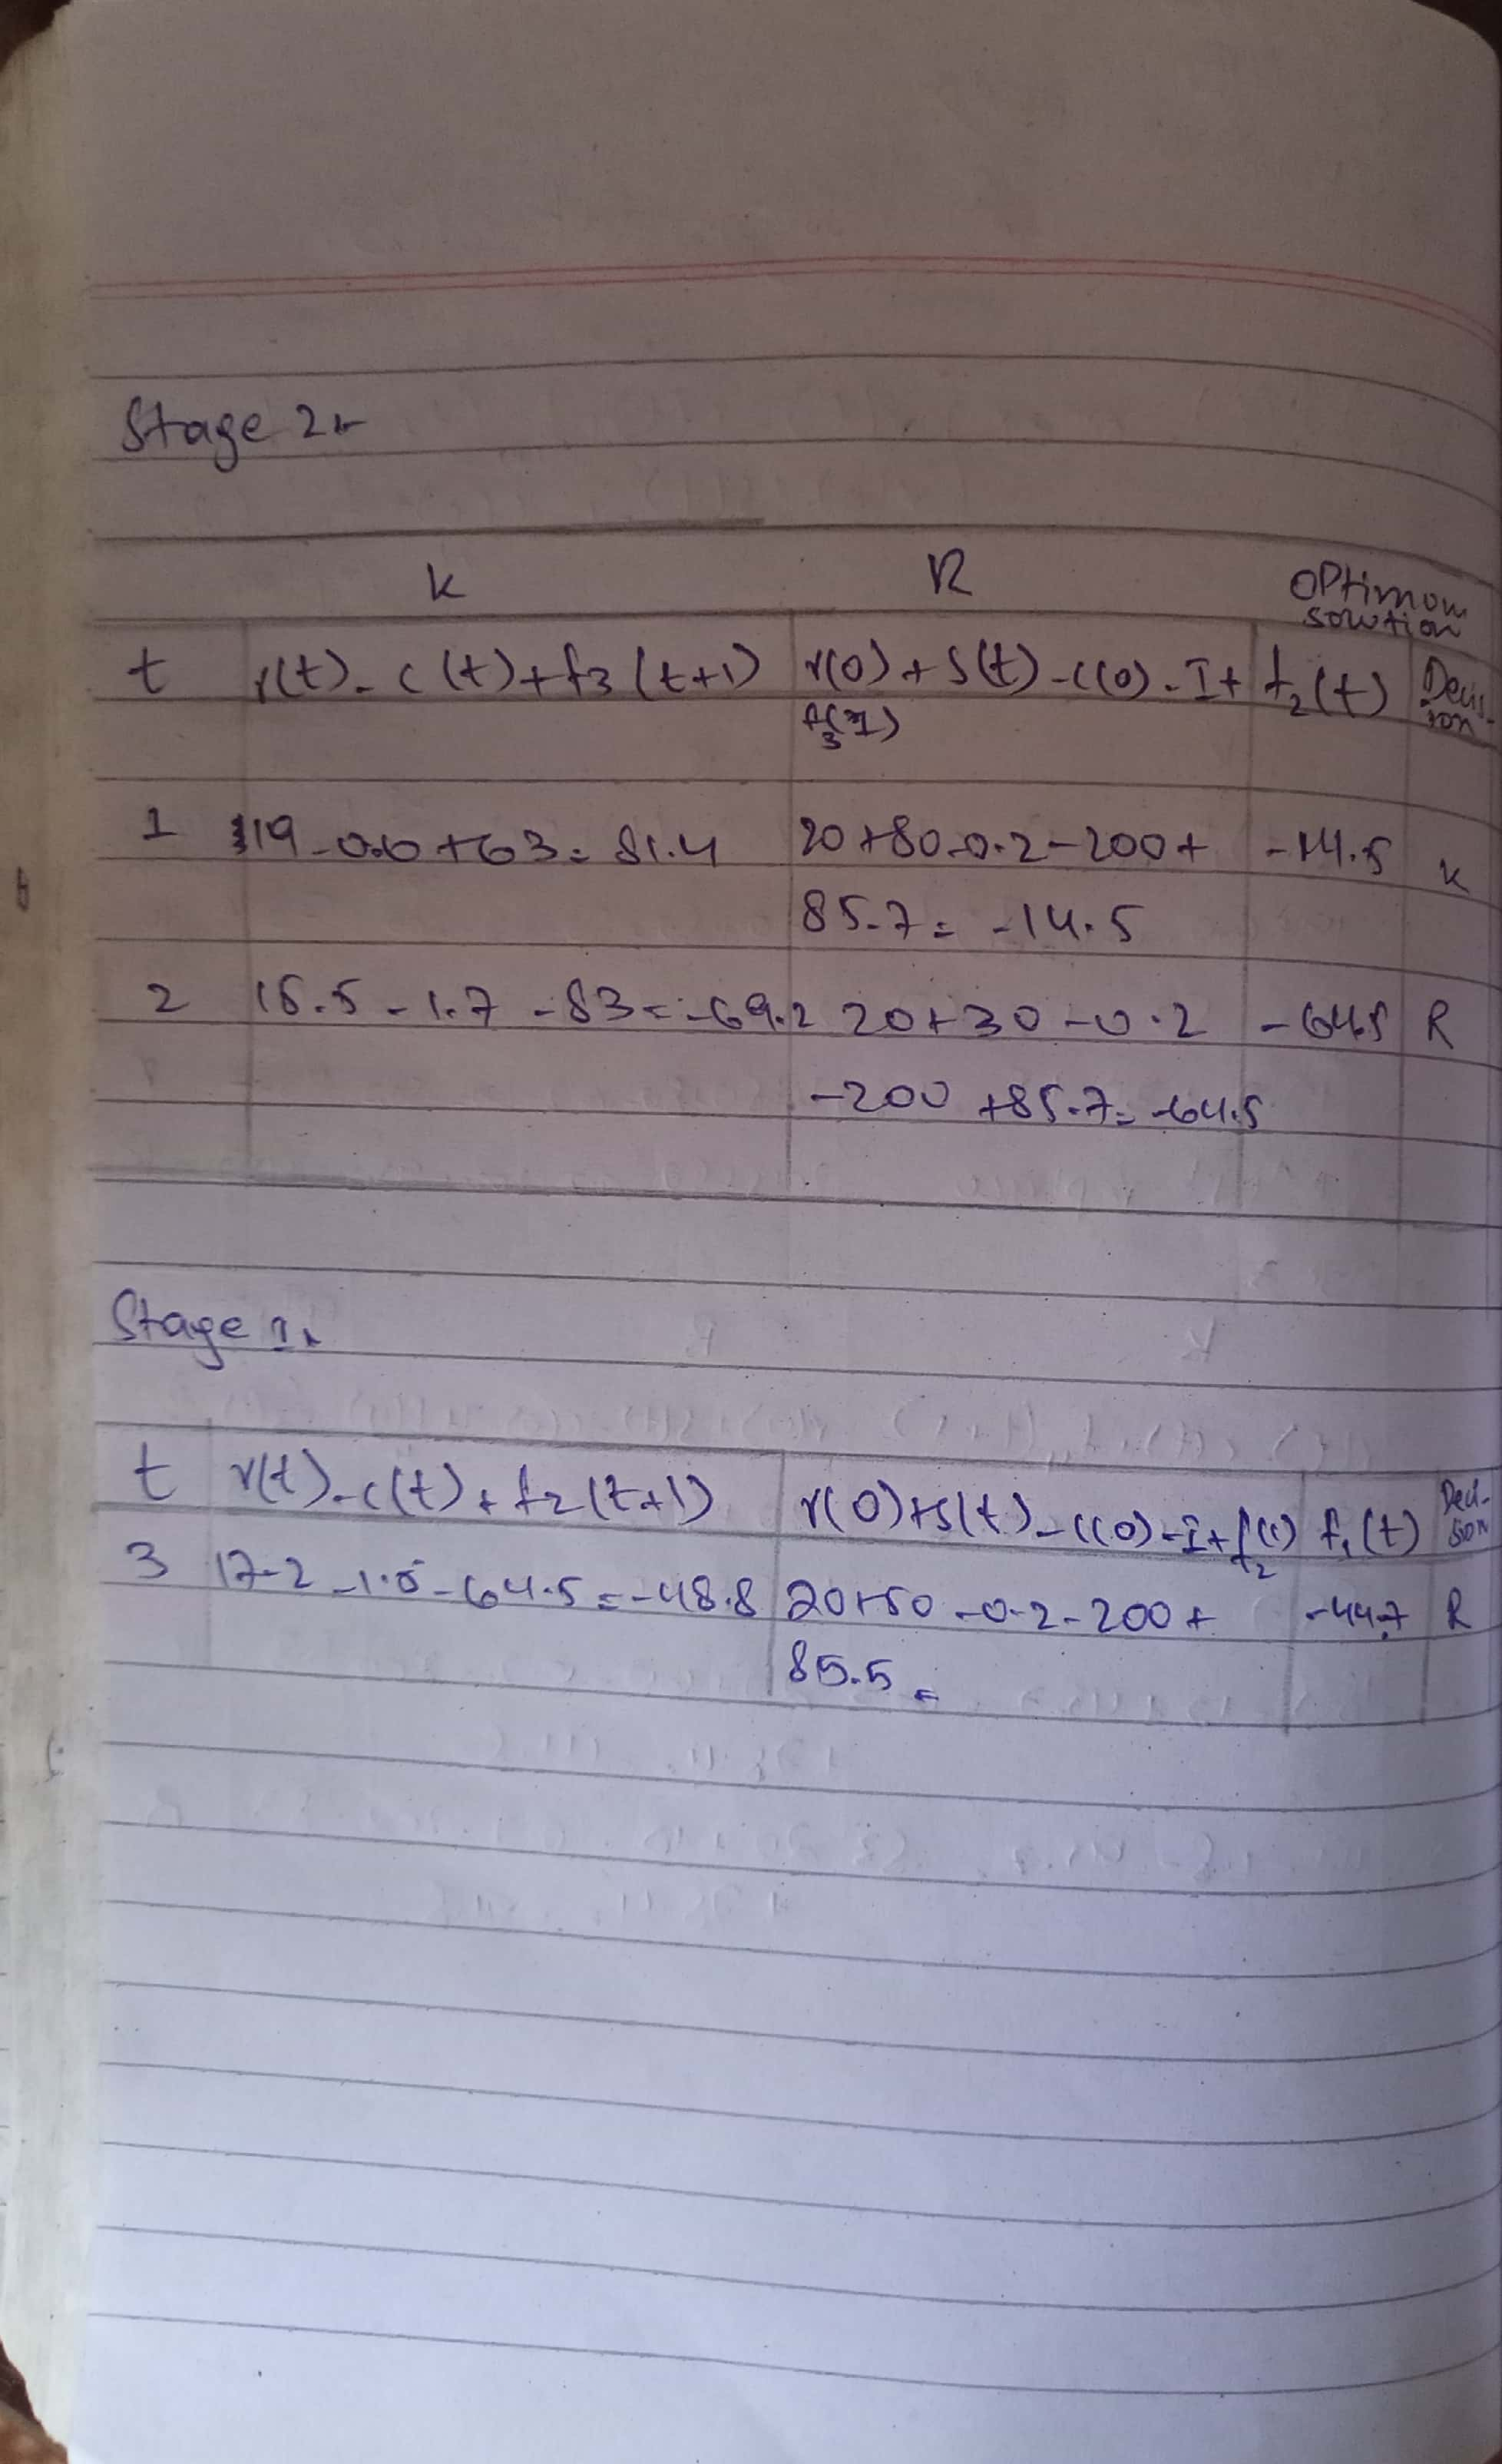 Stage 2
K R OPtimum
solution
t r(t) - c(t) + f3(t+1) r(0) + S(t) - c(0) - I + f2(t) Decis-
f3(1) ion
1 19 - 0.6 + 63 = 81.4 20 + 80 - 0.2 - 200 + -14.5 K
85.7 = -14.5
2 18.5 - 1.7 - 83 = -69.2 20 + 30 - 0.2 -64.5 R
-200 + 85.7 = -64.5
Stage 1
t r(t) - c(t) + f2(t+1) r(0) + S(t) - c(0) - I + f2(1) f1(t) Deci-
sion
3 17.2 - 1.5 - 64.5 = -48.8 20 + 50 - 0.2 - 200 + -44.7 R
85.5 =